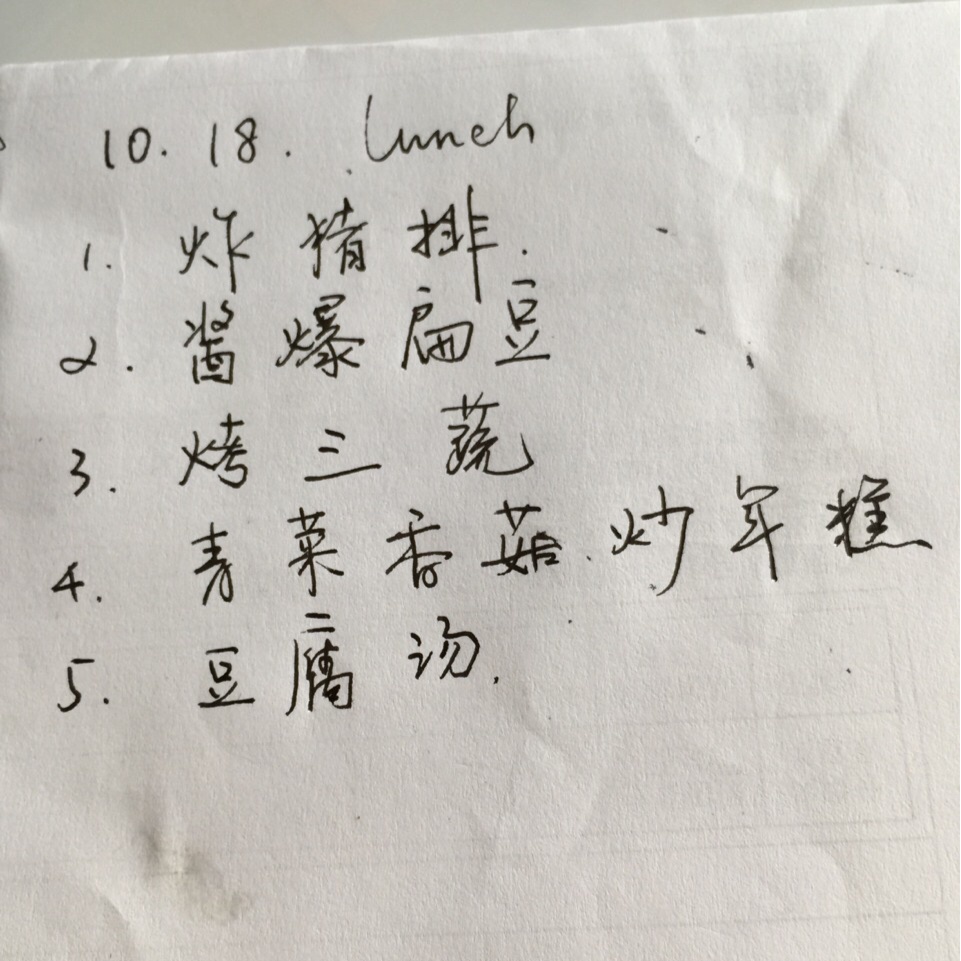 10.18. lunch
1. 炸猪排.
2. 酱爆扁豆
3. 烤三蔬
4. 青菜香菇炒年糕
5. 豆腐汤.